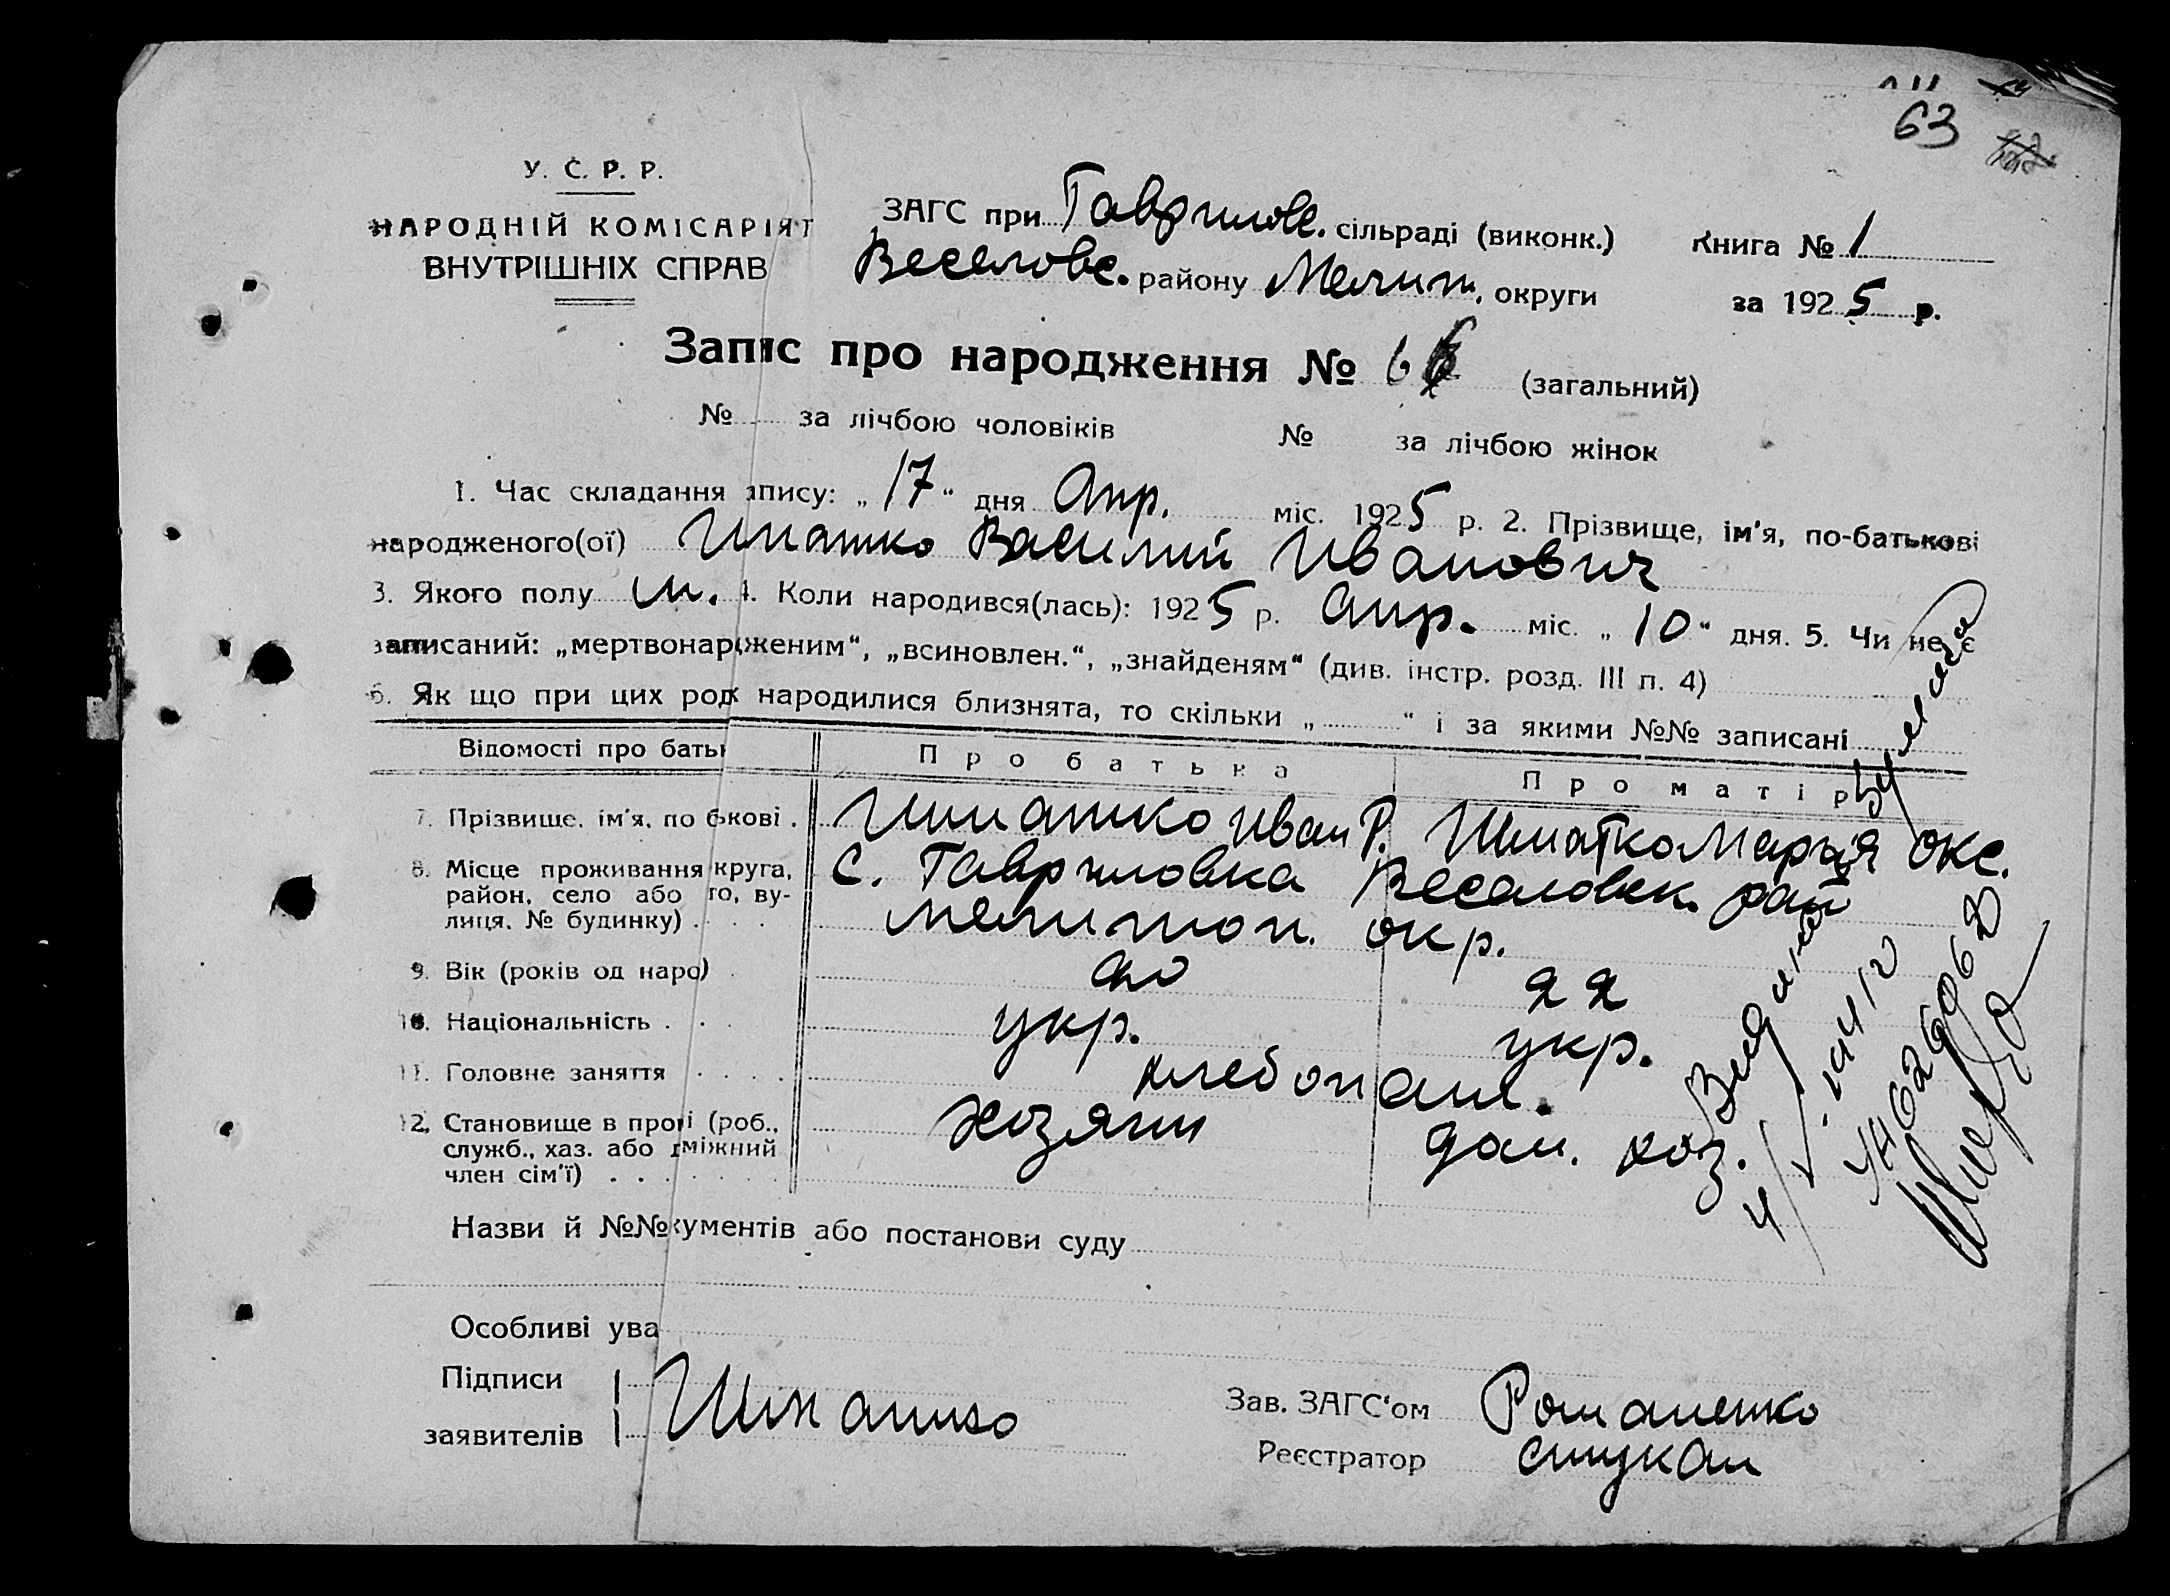 63
У. С. Р. Р.
НАРОДНІЙ КОМІСАРІЯТ
ВНУТРІШНІХ СПРАВ
ЗАГС при Гаврилов. сільраді (виконк.) Книга № 1
Веселовс. району Мелит. округи за 1925 р.
Запис про народження № 6 (загальний)
№ за лічбою чоловіків № за лічбою жінок
1. Час складання апису: „17“ дня Апр. міс. 1925 р. 2. Прізвище, ім'я, по-батькові
народженого(ої) Шматко Василий Иванович
3. Якого полу м. 4. Коли народився(лась): 1925 р. Апр. міс. „10“ дня. 5. Чи не є
записаний: „мертвонародженим“, „всиновлен.“, „знайденям“ (див. інстр. розд. III п. 4)
6. Як що при цих род народилися близнята, то скільки „ “ і за якими №№ записані
Відомості про бать Про батька Про матір
7. Прізвище, ім'я, по бкові . Шматко Иван Р. Шматко Марья Окс.
8. Місце проживання круга, С. Гавриловка Веселовск. рай
район, село або то, ву-
лиця, № будинку) . . . . Мелитоп. окр.
9. Вік (років од наро) . 20 22
10. Національність . . . укр. укр.
11. Головне заняття . . . . хлебопаш.
12. Становище в прові (роб., хозяин дом. хоз.
служб., хаз. або дміжний
член сім'ї) . . . . . . .
Назви й №№кументів або постанови суду
Особливі ува
Підписи
заявителів Шматко
Зав. ЗАГС'ом Романенко
Реєстратор